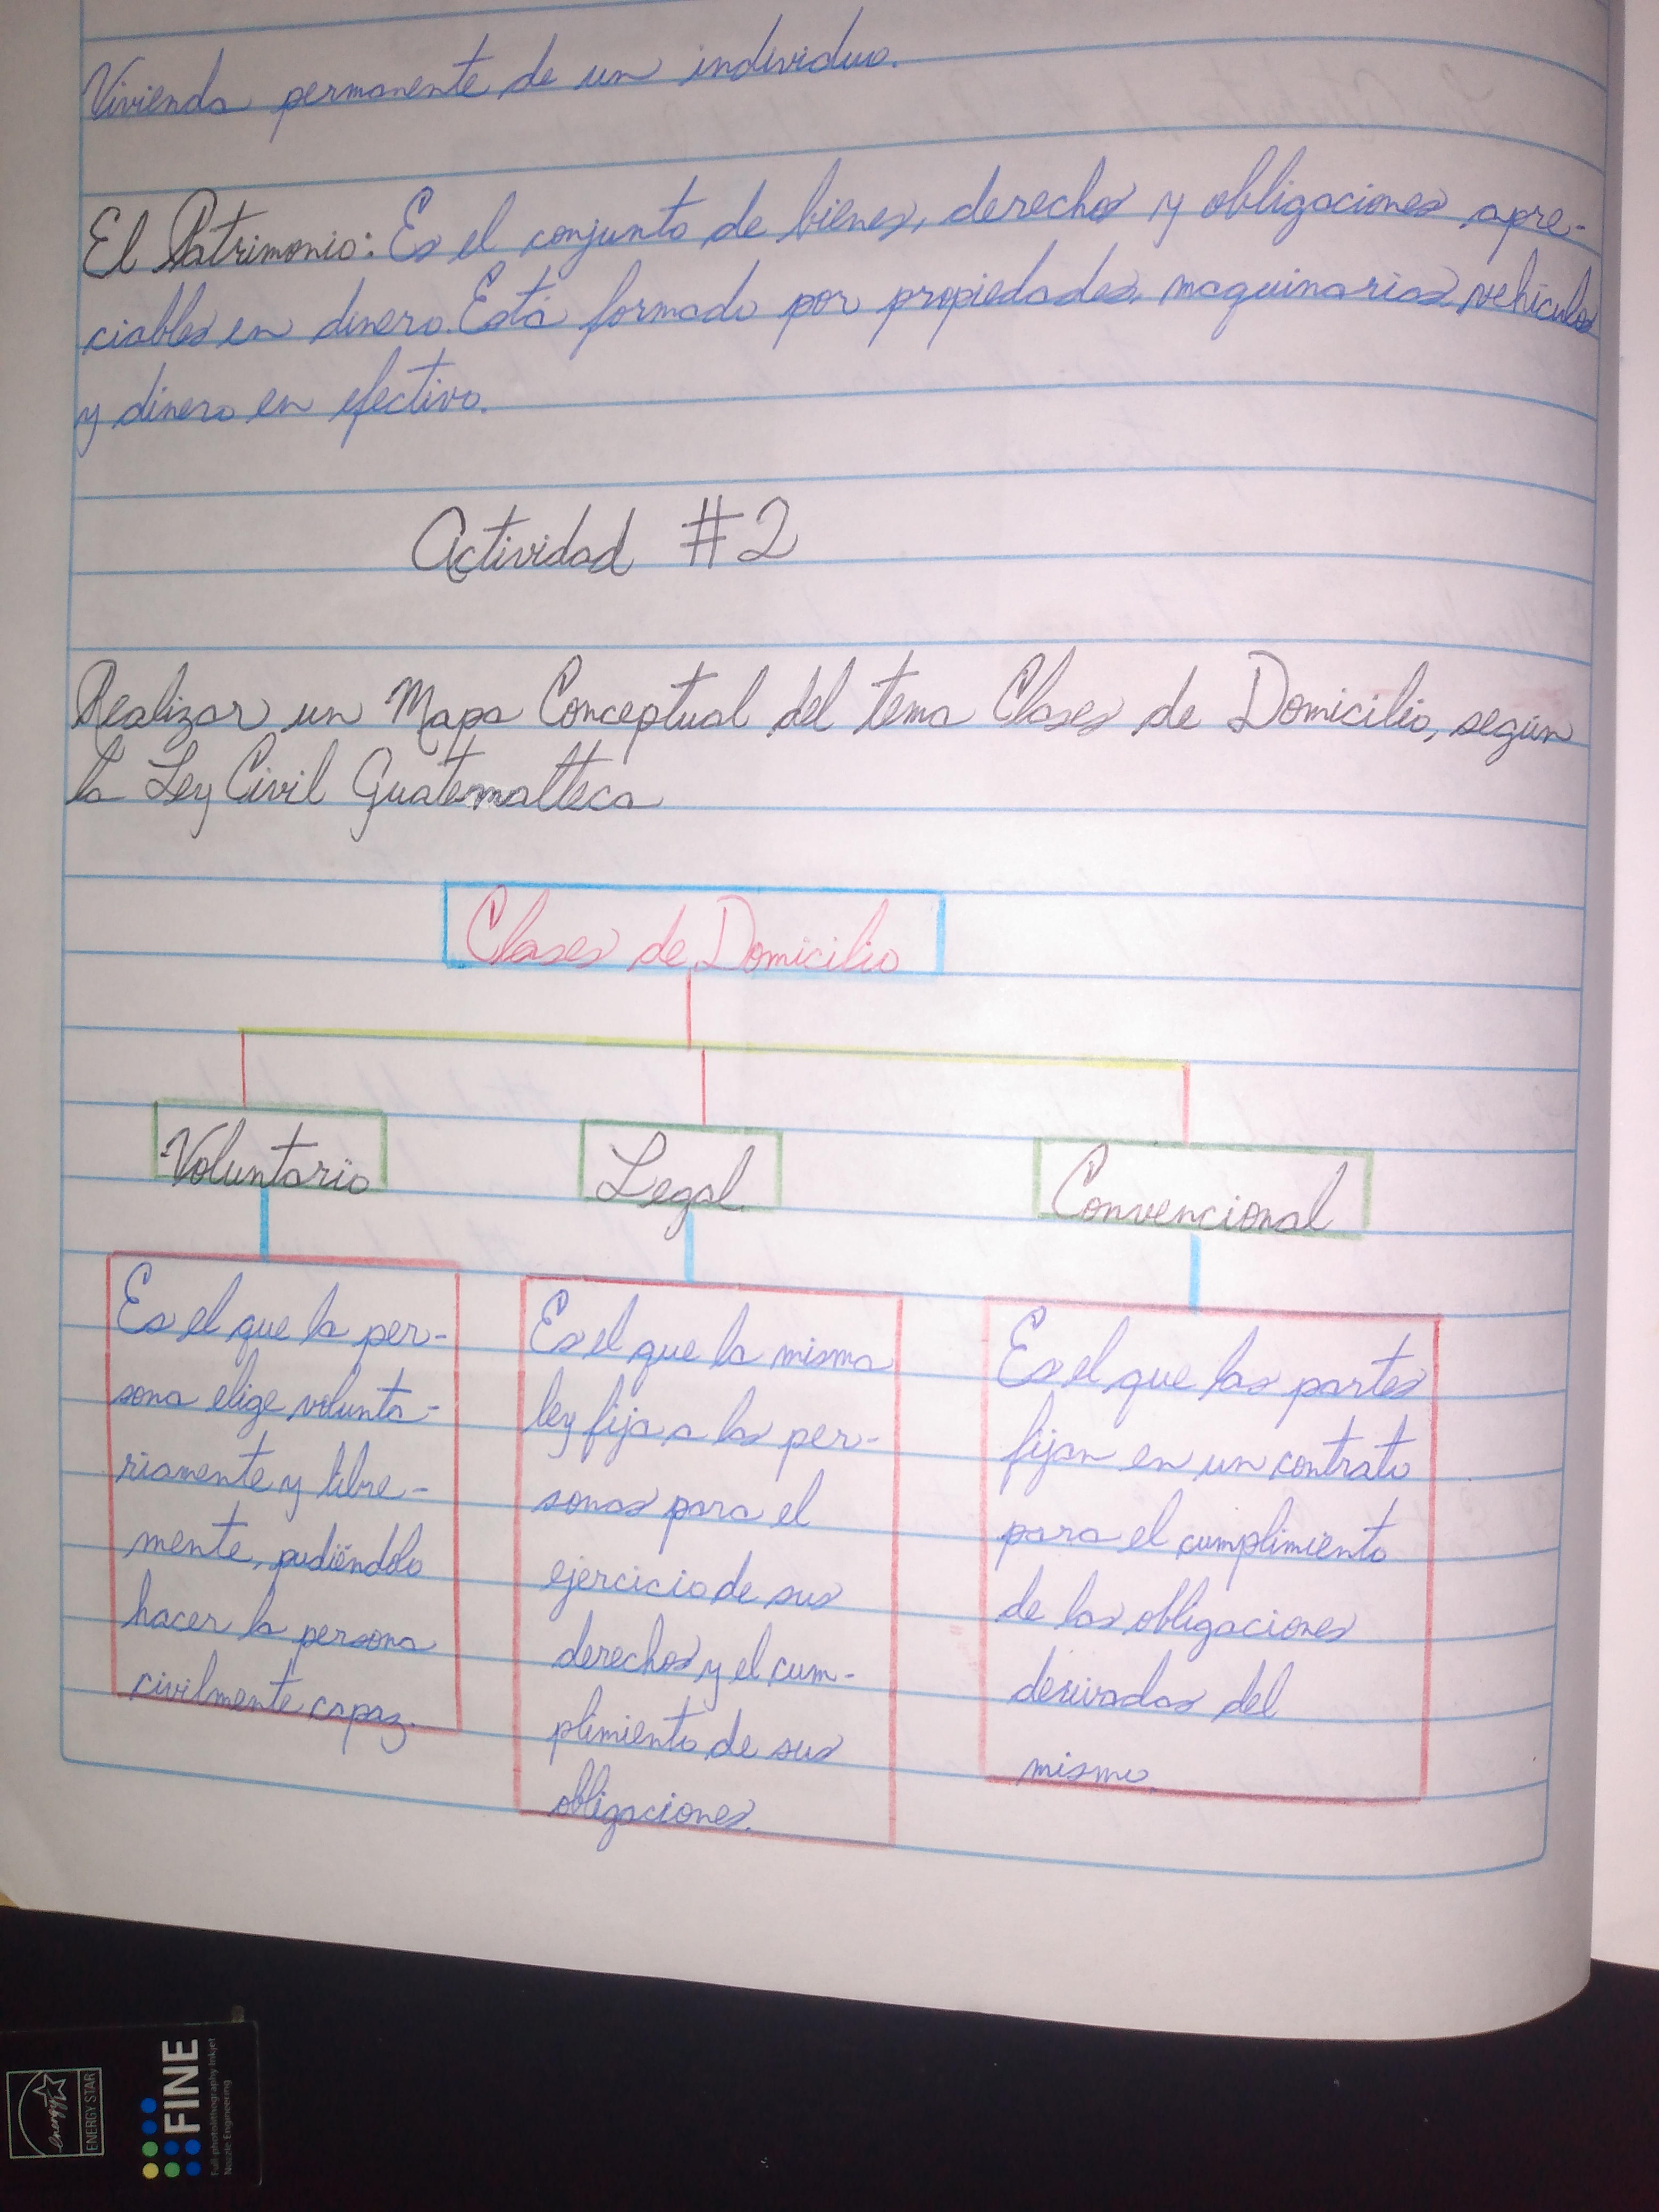 Vivienda permanente de un individuo.
El Patrimonio: Es el conjunto de bienes, derechos y obligaciones apre-
ciables en dinero. Está formado por propiedades, maquinarias, vehículos
y dinero en efectivo.
Actividad #2
Realizar un Mapa Conceptual del tema Clases de Domicilio, según
la Ley Civil Guatemalteca
Clases de Domicilio
Voluntario
Legal
Convencional
Es el que la per-
sona elige volunta-
riamente y libre-
mente, pudiéndolo
hacer la persona
civilmente capaz.
Es el que la misma
ley fija a las per-
sonas para el
ejercicio de sus
derechos y el cum-
plimiento de sus
obligaciones.
Es el que las partes
fijan en un contrato
para el cumplimiento
de las obligaciones
derivadas del
mismo.
energy
ENERGY STAR
FINE
Full-photolithography Inkjet
Nozzle Engineering